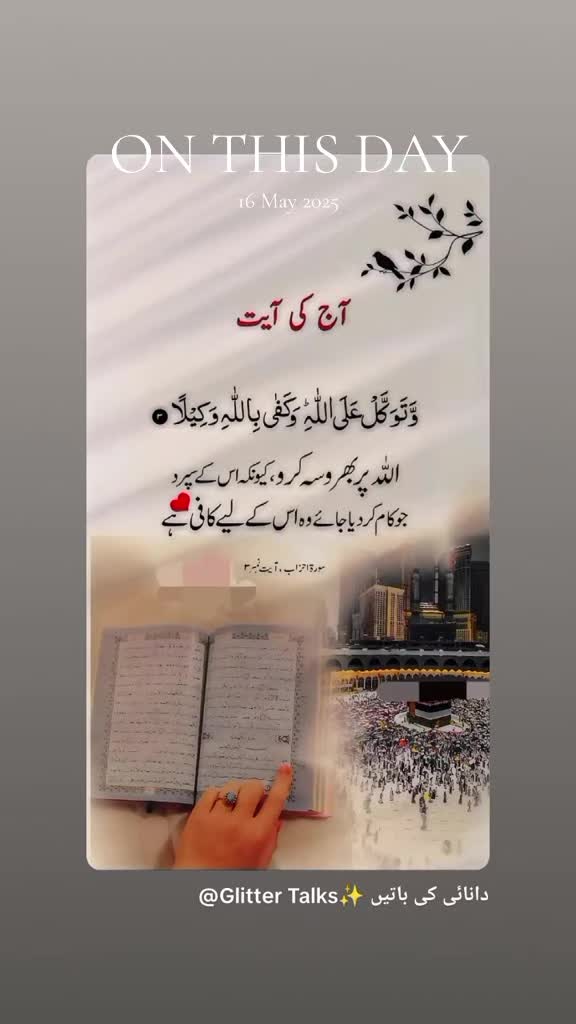 ON THIS DAY
16 May 2025
آج کی آیت
وَّتَوَكَّلْ عَلَى اللّٰهِ ؕ وَكَفٰى بِاللّٰهِ وَكِيْلًا ۳
اللہ پر بھروسہ کرو، کیونکہ اس کے سپرد
جو کام کر دیا جائے وہ اس کے لیے کافی ہے
سورۃ احزاب، آیت نمبر ۳
@Glitter Talks✨ دانائی کی باتیں